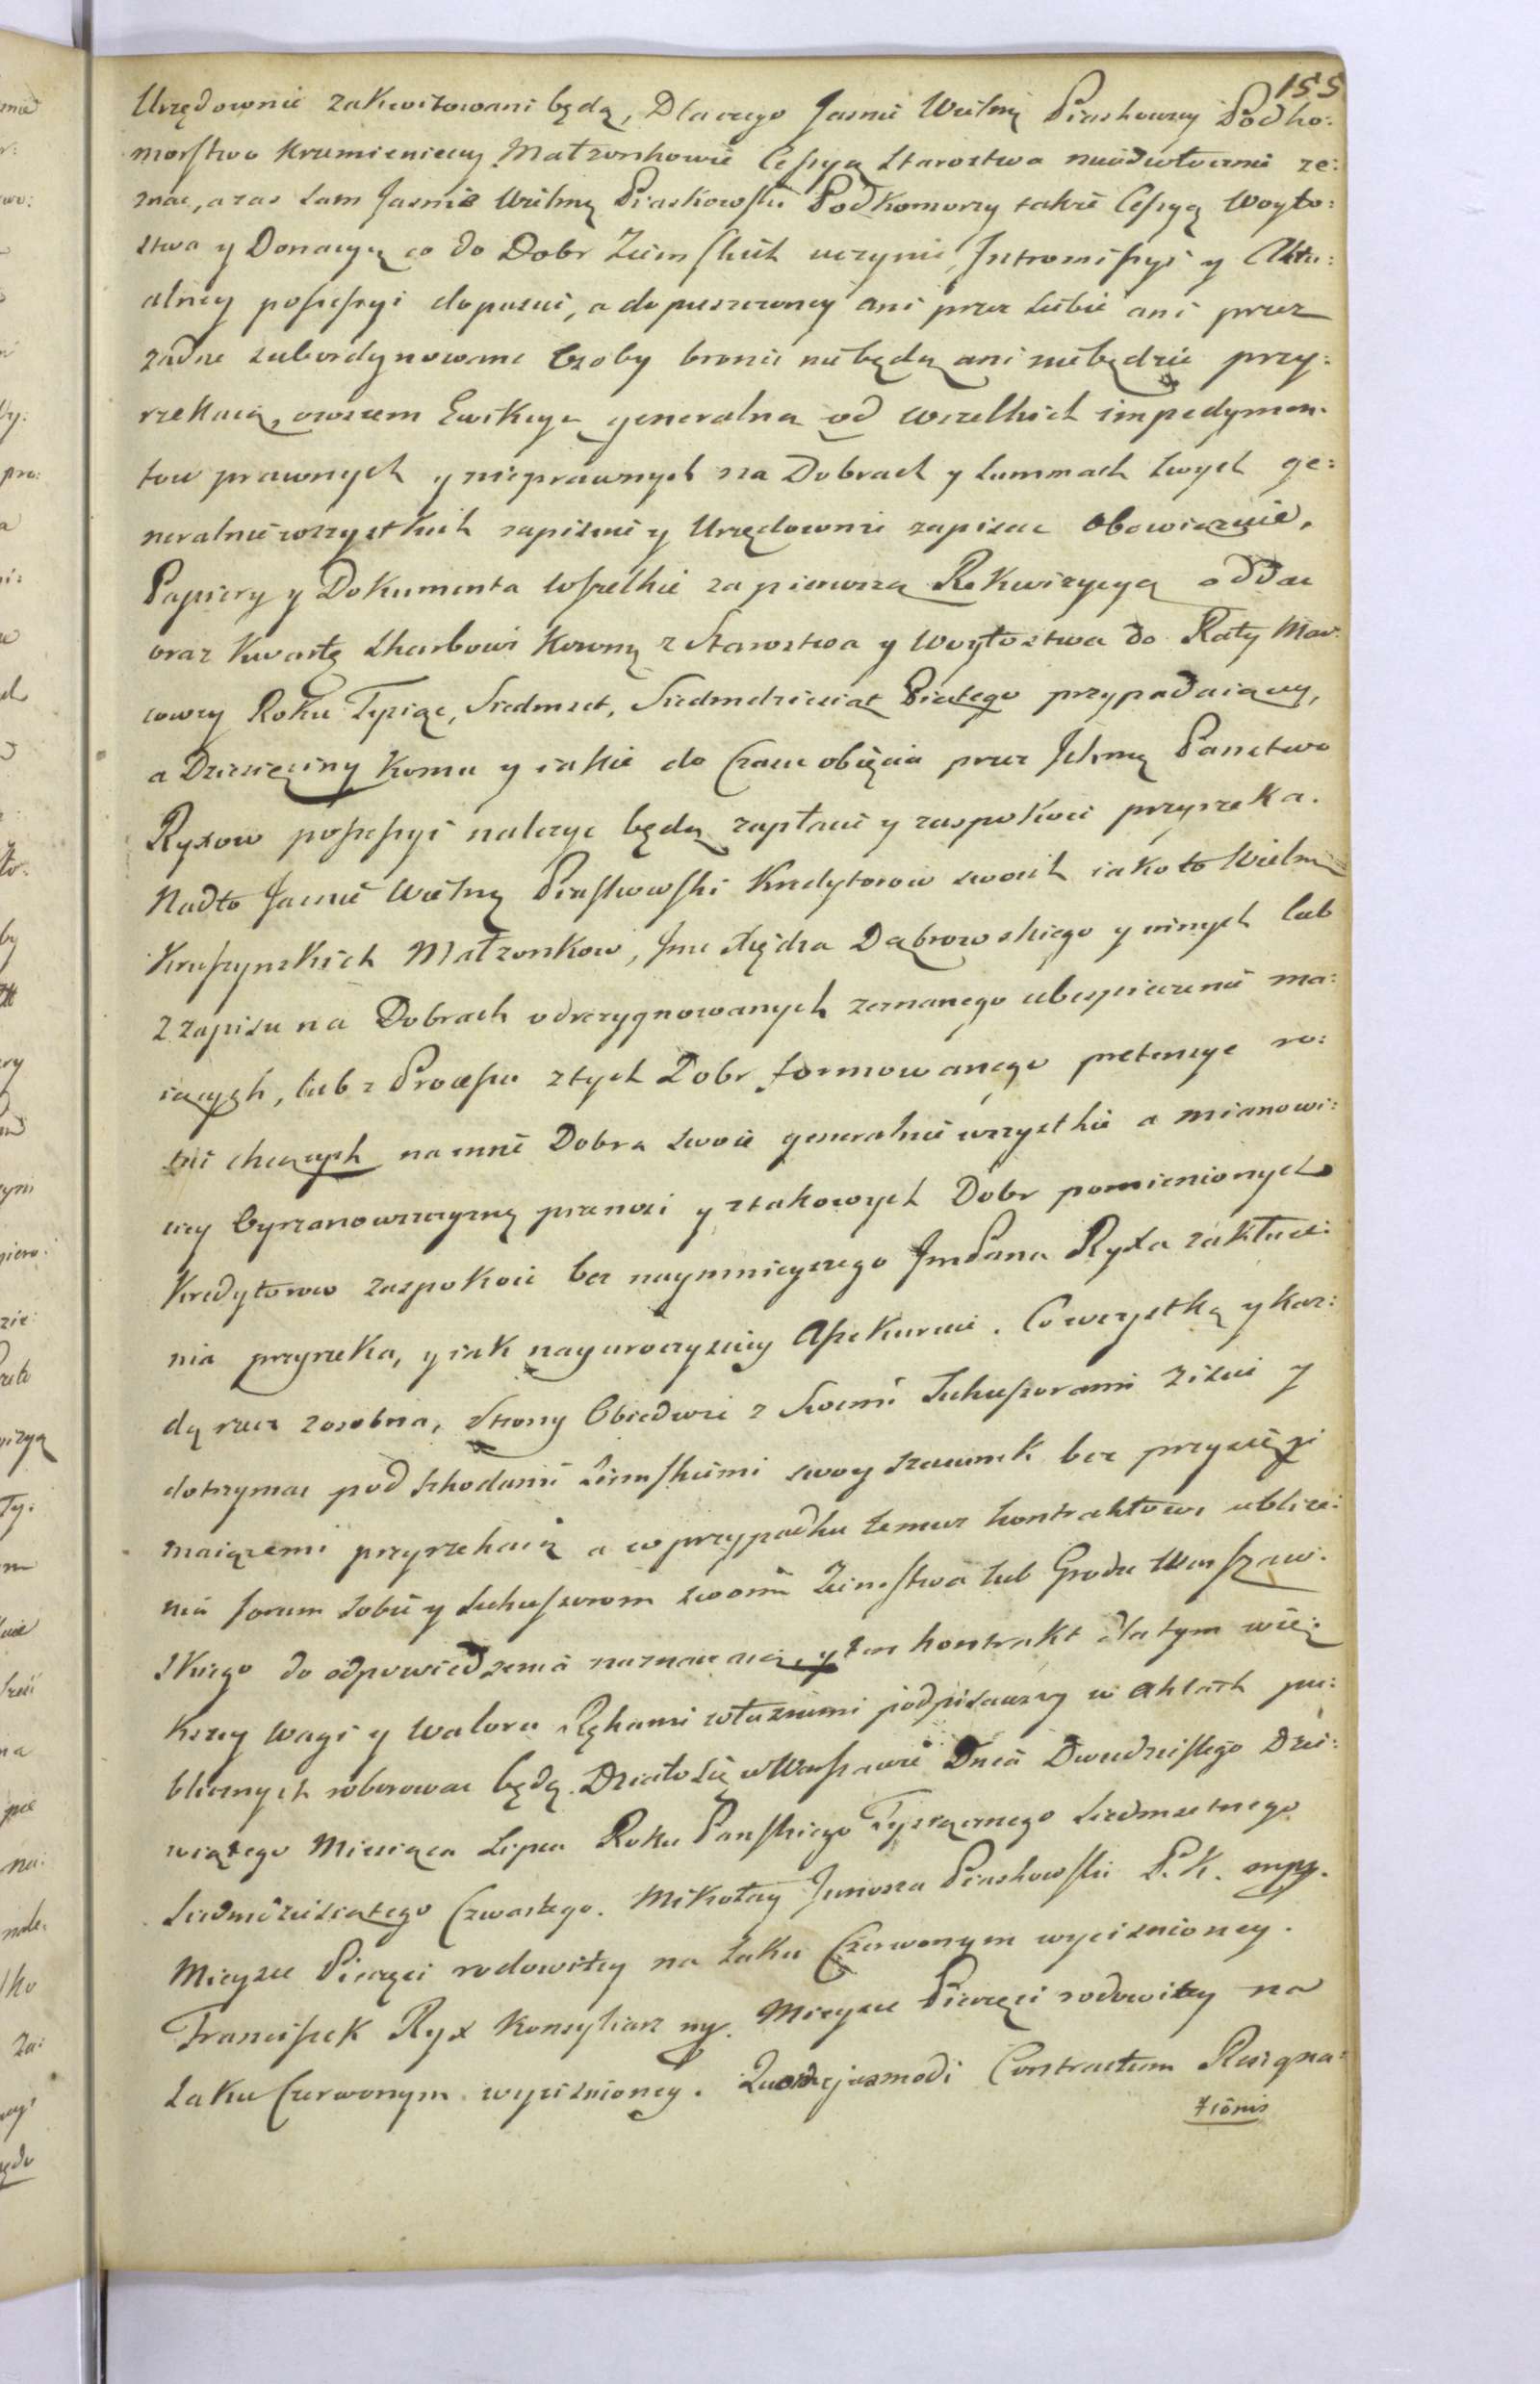 155
Urzędownie zakwitowani będą, Dlaczego Jasnie Wielmż Piaskowscy Podko:
morstwo Krzemienieccy Małżonkowie Cessyą Starostwa nieodwłocznie ze:
znac, a zas sam Jasnie Wielmż Piaskowski Podkomorzy takze Cessyą Woyto:
stwa y Donacyą co do Dobr Ziemskich uczynic, Intromissyi y Aktu:
alney possessyi dopuscic, a dopuszczoney ani przez siebie ani przez
zadne subordynowane Osoby bronic niebędą ani niebędzie przy:
rzekaią, owszem Ewikcyą generalną od wszelkich impedymen:
tow prawnych y nieprawnych na Dobrach y Summach swych ge:
neralnie wszystkich zapisuie y Urzędownie zapisac obowiązuie,
Papiery y Dokumenta wszelkie za pierwszą Rekwizycyą oddac
oraz Kwartę Skarbowi Koronn z Starostwa y Woytostwa do Raty Mar:
cowey Roku Tysiąc, Siedmset, Siedmdziesiąt Piątego przypadaiącey,
a Dziesięciny komu y iakie do Czasu obięcia przez Ichmę Panstwo
Ryxow possessyi nalezyc będą zapłacic y zaspokoic przyrzeka.
Nadto Jasnie Wielmż Piaskowski Kredytorow swoich iako to Wielm
Kraszynskich Małżonkow, Jmc Xiędza Dąbrowskiego y innych lub
z zapisu na Dobrach odrezygnowanych zeznanego ubespieczenie ma:
iących, lub z Processu z tych Dobr formowanego pretensye ro:
scic chcących na inne Dobra swoie generalnie wszystkie a mianowi:
cey Cyrzanowszczyznę przenosi y z takowych Dobr pomienionych
Kredytorow zaspokoic bez naymnieyszego JmPana Ryxa zakłuce:
nia przyrzeka, y iak nayuroczysciey Assekuruie. Co wszystko y kaz:
dą rzecz zosobna, Strony Obiedwie z Swemi Sukcessorami ziscic y
dotrzymac pod szkodami Ziemskiemi swoy szacunek bez przysięgi
maiącemi przyrzekaią a w przypadku temuz kontraktowi ublize:
nia forum sobie y Sukcessorom swoim Ziemstwa lub Grodu Warszaw:
skiego do odpowiedzenia naznaczaią, y ten kontrakt dla tym wię:
kszey wagi y waloru Rękami własnemi podpisawszy w aktach pu:
blicznych roborowac będą. Działo się w Warszawie Dnia Dwudziestego Dzie:
wiątego Miesiąca Lipca Roku Panskiego Tysiącznego Siedmsetnego
Siedmdziesiątego Czwartego. Mikołay Junosza Piaskowski P. K. mpp.
Mieysce Pieczęci rodowitey na Laku Czerwonym wycisnioney.
Franciszek Ryx Konsyliarz mp. Mieysce Pieczęci rodowitey na
Laku Czerwonym wycisnioney. Quodejusmodi Contractum Resigna:
tionis